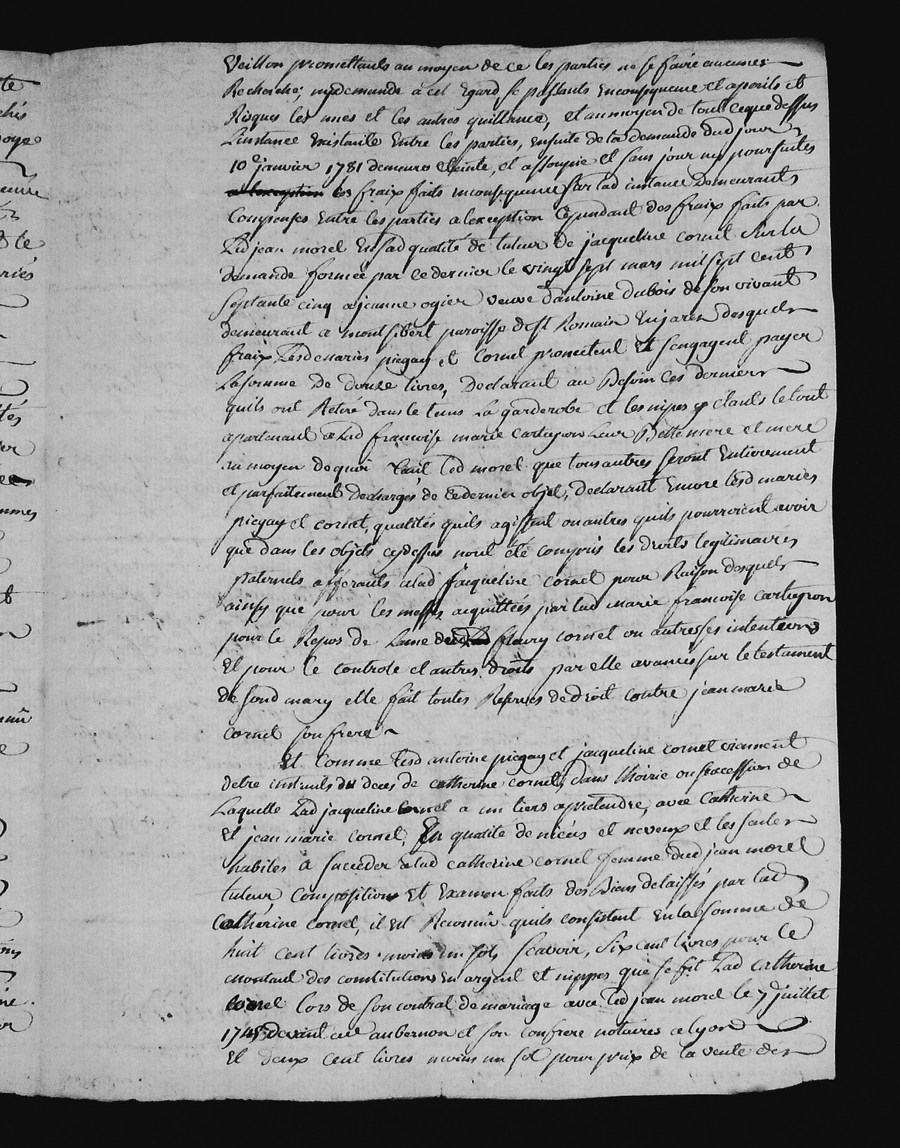 veillon promettants au moyen de ce les parties ne se faire aucunes
Recherches ny demande a cet Egard se passants En consequence et aperils et
Risques les unes et les autres quittance, et au moyen de tout ce que dessus
Linstance Existante Entre les parties, ensuite de la demande dud jour
10 e janvier 1781 demeure Eteinte, et assoupie et sans jour ny poursuites
a lexception les fraix faits en consequence sur lad instance Demeurants
Compensés Entre les parties a lexception Cependant des fraix faits par
Led jean morel En sad qualité de tuteur de jacqueline cornet sur la
demande formée par ce dernier le vingt sept mars mil sept cent
septante cinq a jeanne ogier veuve dantoine dubois de son vivant
demeurant a montsibert paroisse de st Romain En jarest desquels
fraix Lesd mariés piegay et Cornet promettent et s'engagent payer
La somme de douze livres, Declarant au Besoin ces derniers
quils ont Retiré dans le tems La garderobe et les nipes y Etants le tout
apartenant a Lad françoise marie cartegron Leur Bellemere et mere
au moyen de quoi tant Led morel que tous autres seront Entierement
et parfaitement Dechargés de ce dernier objet, Declarant Encore lesd mariés
piegay et cornet, qualités quils agissent ou autres quils pourroient avoir
que dans les objets cy dessus nont été compris les droits legitimaires
paternels afférants alad jacqueline cornet pour Raison desquels
ainsy que pour les messes acquittées par lad marie françoise cartegron
pour le Repos de Lame fleury cornet ou autres ses intentions
Et pour le controle et autres droits par elle avancés sur le testament
de sond mary elle fait toutes Reserves de droit contre jean marie
Cornet son frere
Et Comme Lesd antoine piegay et jacqueline cornet viennent
detre instruits du deces de catherine cornet, dans lhoirie ou succession de
Laquelle Lad jacqueline Cornet a un tiers a pretendre, avec Catherine
Et jean marie cornet, En qualité de niéces et neveux et les seuls
habiles à succéder a lad catherine cornet femme dud jean morel
tuteur Composition et Examen faits des Biens delaissés par lad
Catherine cornet, il est Reconnû quils consistent En la somme de
huit cent livres moins un sol, scavoir, six cent livres pour le
montant des constitutions en argent et nippes que se fit Lad catherine
Cornet lors de son contrat de mariage avec Led jean morel le 7 juillet
1745 devant me aubernon et son confrere notaires a lyon
Et deux cent livres moins un sol pour prix de la vente des